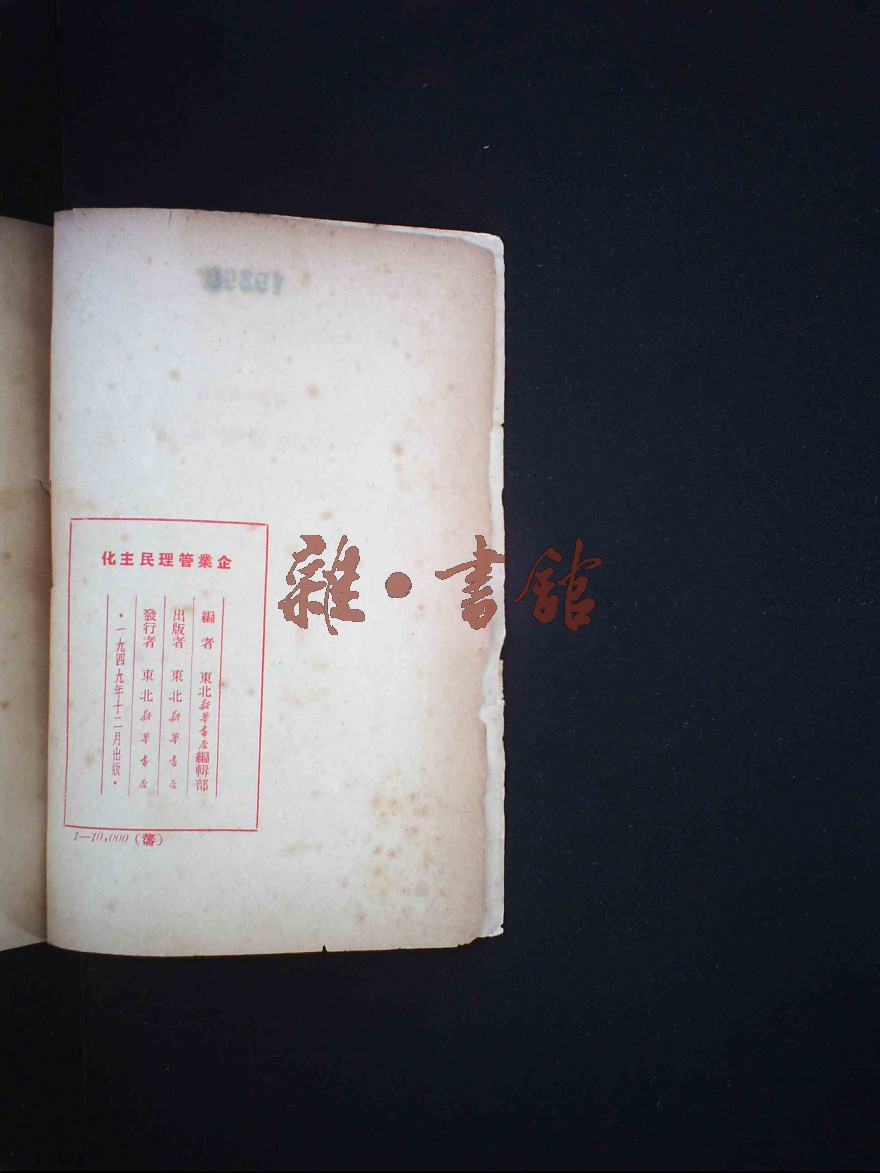 企業管理民主化
編者 東北新華書店編輯部
出版者 東北新華書店
發行者 東北新華書店
·一九四九年十二月出版·
1—10,000(瀋)
雜·書館